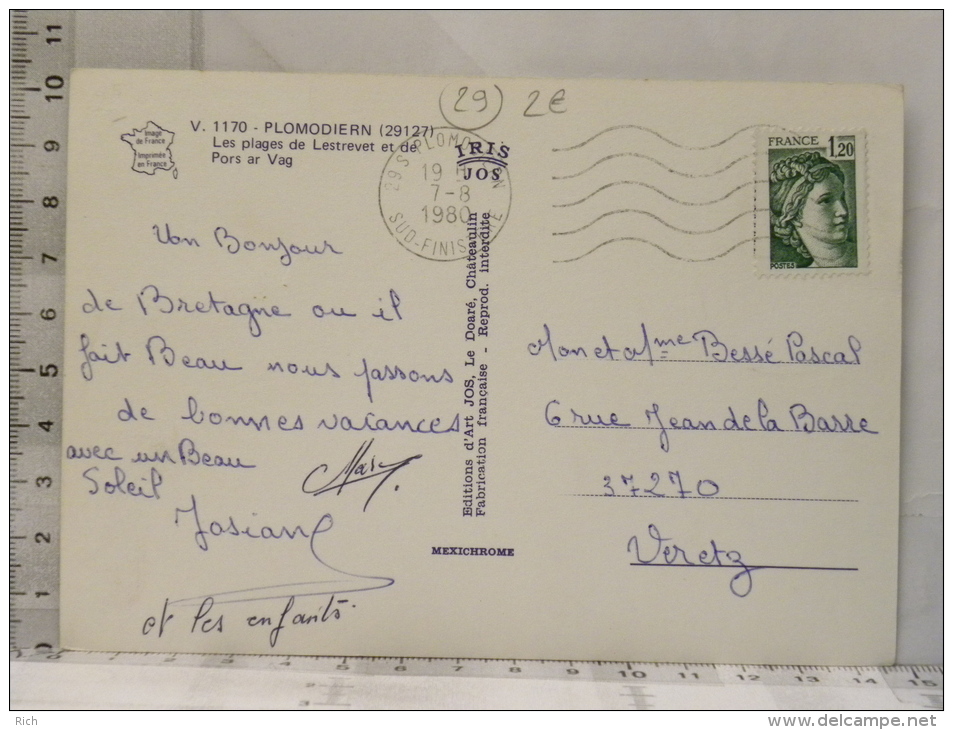 (29) 2€
V. 1170 - PLOMODIERN (29127)
Les plages de Lestrevet et de
Pors ar Vag
Image
de France
Imprimée
en France
IRIS
JOS
29 S PLOMO
19 H
7-8
1980
SUD-FINISTERE
FRANCE 1,20
POSTES
Un Bonjour
de Bretagne ou il
fait Beau nous passons
de bonnes vacances
avec un Beau
Soleil
Marc
Josiane
et les enfants.
Editions d'Art JOS, Le Doaré, Châteaulin
Fabrication française - Reprod. interdite
MEXICHROME
Mon et Mme Bessé Pascal
6 rue Jean de la Barre
37270
Veretz
0 1 2 3 4 5 6 7 8 9 10 11
2 3 4 5 6 7 8 9 10 11 12 13 14 15
Rich
www.delcampe.net